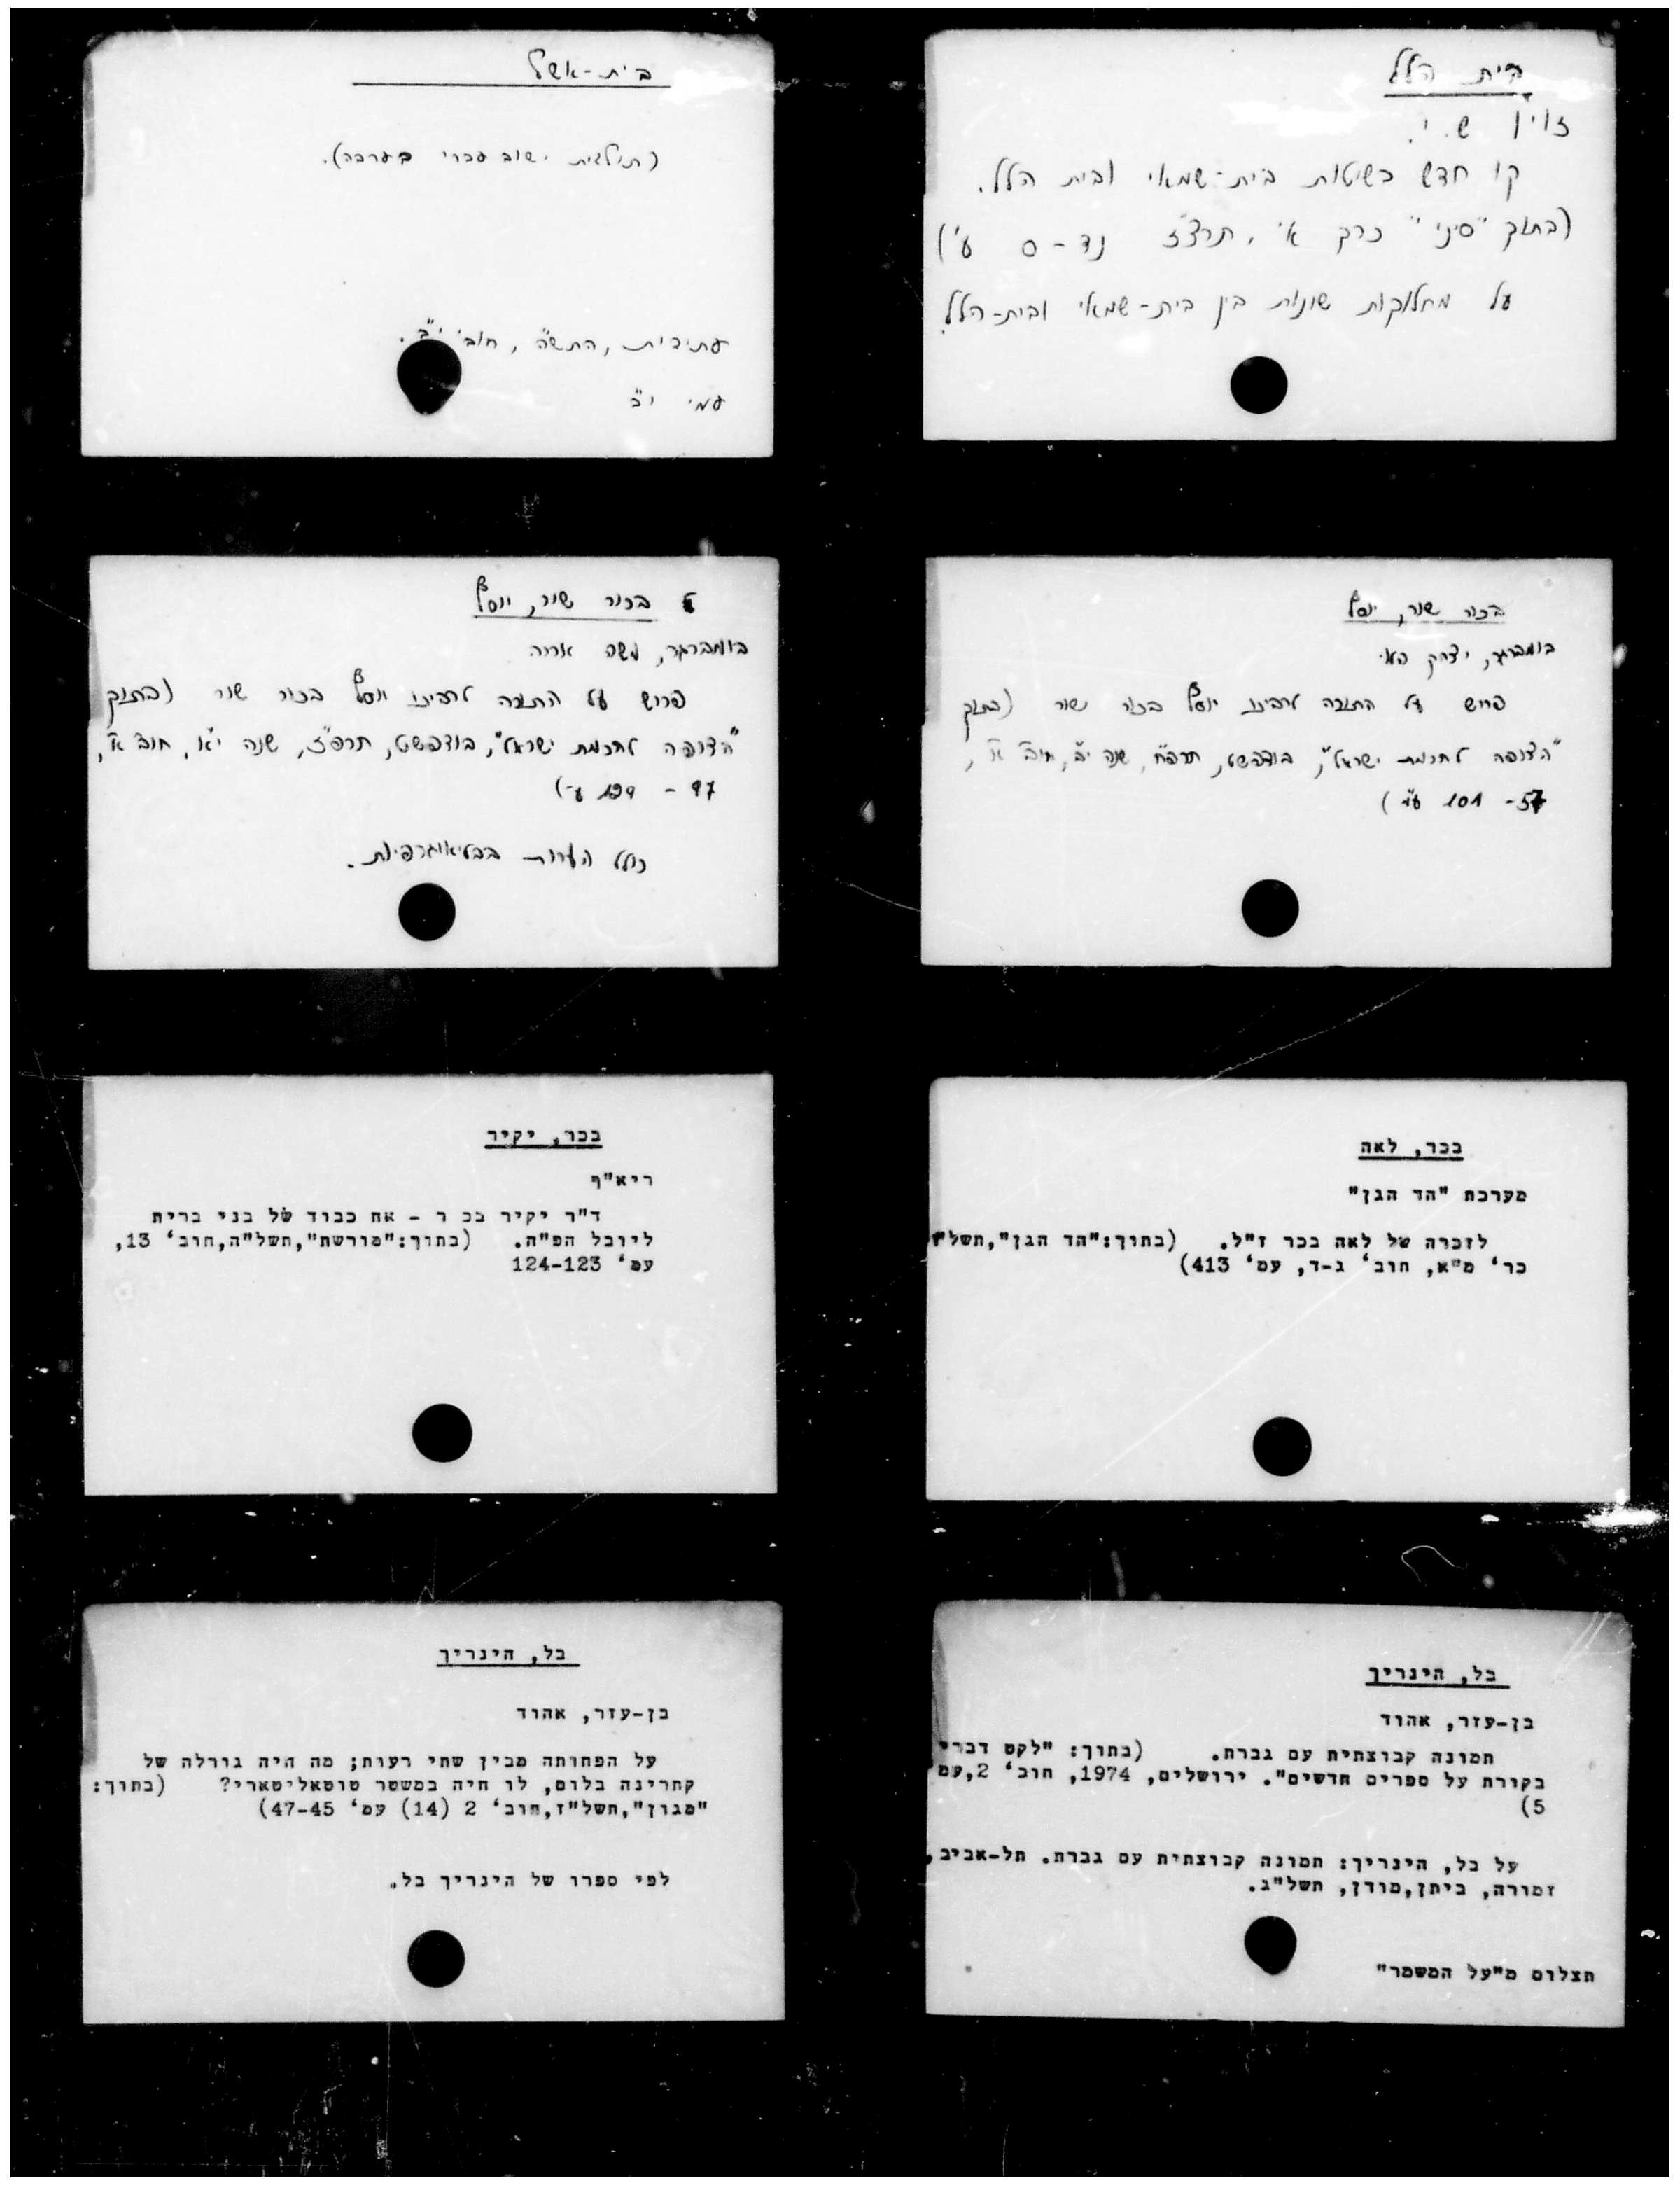 בית הלל
זוין ש. י.
קו חדש בשיטות בית-שמאי ובית הלל.
(בתוך "סיני" כרך א', תרצ"ז נד-ס ע')
על מחלוקות שונות בין בית-שמאי ובית-הלל.
בית-אשל
(תולדות ישוב עברי בערבה).
עתידות, התש"ה, חוב' י"ב.
עמ' י"ב
בכור שור, יוסף
במברגר, יצחק
פרוש על התורה לרבינו יוסף בכור שור (בתוך
"הצופה לחכמת ישראל", בודפשט, תרפ"ח, שנה י"ב, חוב' א',
57- 101 ע"מ)
בכור שור, יוסף
במברגר, משה אריה
פרוש על התורה לרבינו יוסף בכור שור (בתוך
"הצופה לחכמת ישראל", בודפשט, תרפ"ז, שנה י"א, חוב' א',
97 -
כולל הערות בבליאוגרפיות.
בכר, לאה
מערכת "הד הגן"
לזכרה של לאה בכר ז"ל. (בתוך:"הד הגן",תשל"
כר' מ"א, חוב' ג-ד, עמ' 413)
בכר, יקיר
ריא"ף
ד"ר יקיר בכ ר - אח כבוד של בני ברית
ליובל הפ"ה. (בתוך:"מורשת",תשל"ה,חוב' 13,
עמ' 124-123
בל, היינריך
בן-עזר, אהוד
תמונה קבוצתית עם גברת. (בתוך: "לקט דברי
בקורת על ספרים חדשים". ירושלים, 1974, חוב' 2,עמ
5)
על בל, הינריך: תמונה קבוצתית עם גברת. תל-אביב,
זמורה, ביתן,מודן, תשל"ג.
תצלום מ"על המשמר"
בל, היינריך
בן-עזר, אהוד
על הפחותה מבין שתי רעות; מה היה גורלה של
קתרינה בלום, לו חיה במשטר טוטאליטארי? (בתוך:
"מגוון",תשל"ז,חוב' 2 (14) עמ' 47-45)
לפי ספרו של היינריך בל.